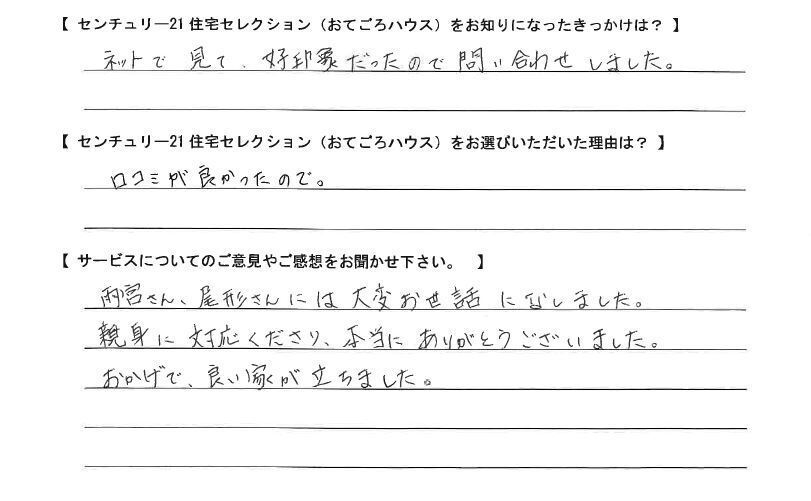 【 センチュリー21 住宅セレクション（おてごろハウス）をお知りになったきっかけは？ 】
ネットで 見て、好印象だったので 問い合わせ しました。
【 センチュリー21 住宅セレクション（おてごろハウス）をお選びいただいた理由は？ 】
口コミが 良かったので。
【 サービスについてのご意見やご感想をお聞かせ下さい。 】
雨宮さん、尾形さんには 大変お世話 になしました。
親身に 対応くださり、本当に ありがとうございました。
おかげで、良い家が 立ちました。